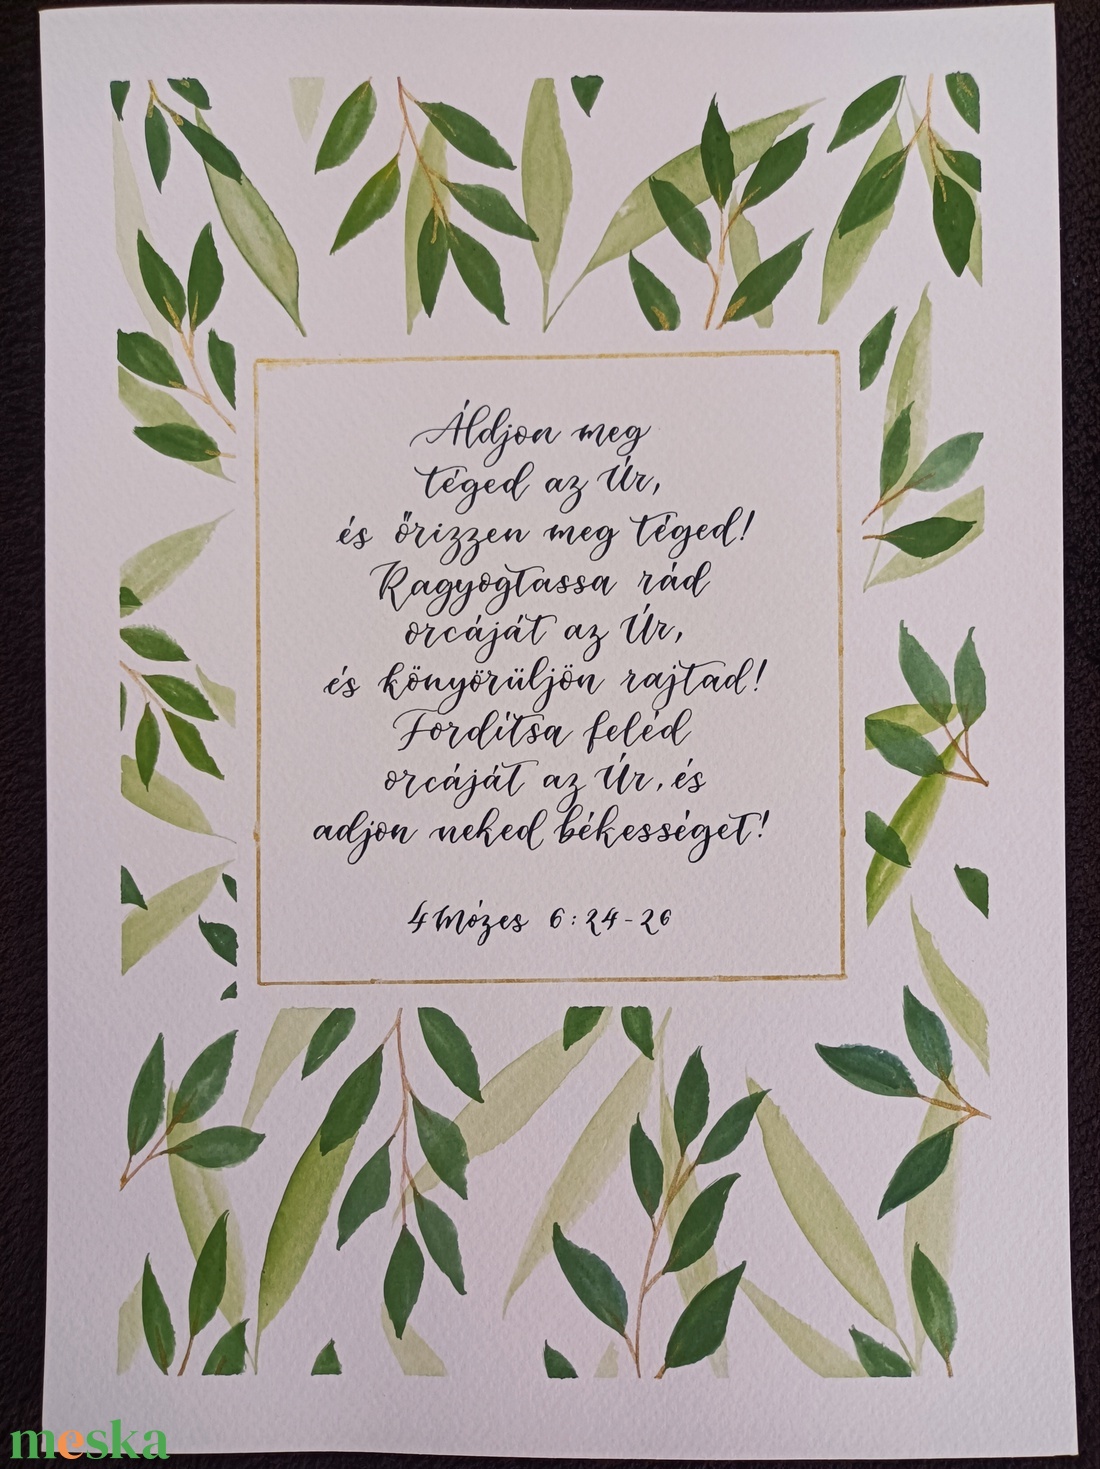 Áldjon meg
téged az Úr,
és őrizzen meg téged!
Ragyogtassa rád
orcáját az Úr,
és könyörüljön rajtad!
Fordítsa feléd
orcáját az Úr, és
adjon neked békességet!
4 Mózes 6:24-26
meska